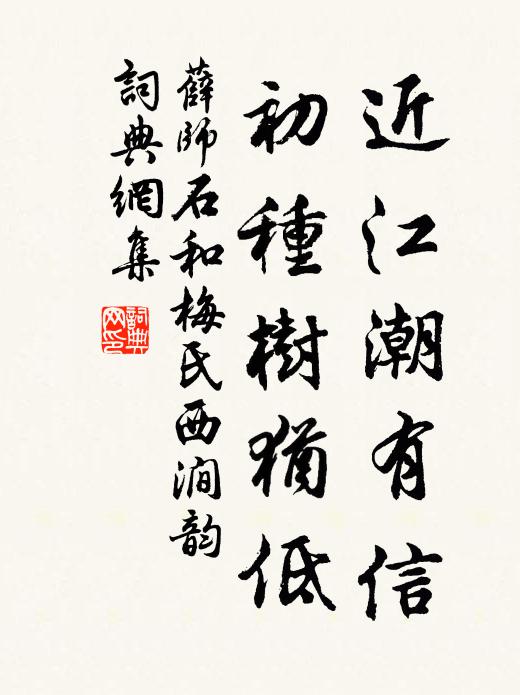 近江潮有信
初種樹猶低
薛師石和梅氏西澗韵
詞典網集
詞典网印